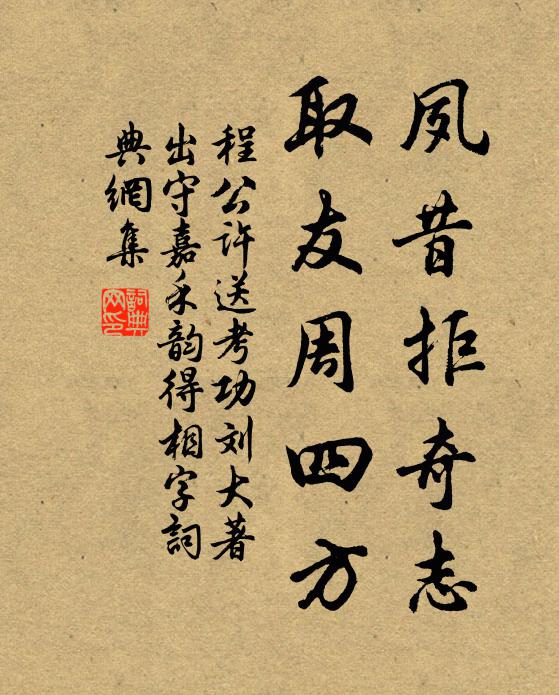 夙昔拒奇志
取友周四方
程公许送考功刘大著
出守嘉禾韵得相字詞
典網集
詞典網印